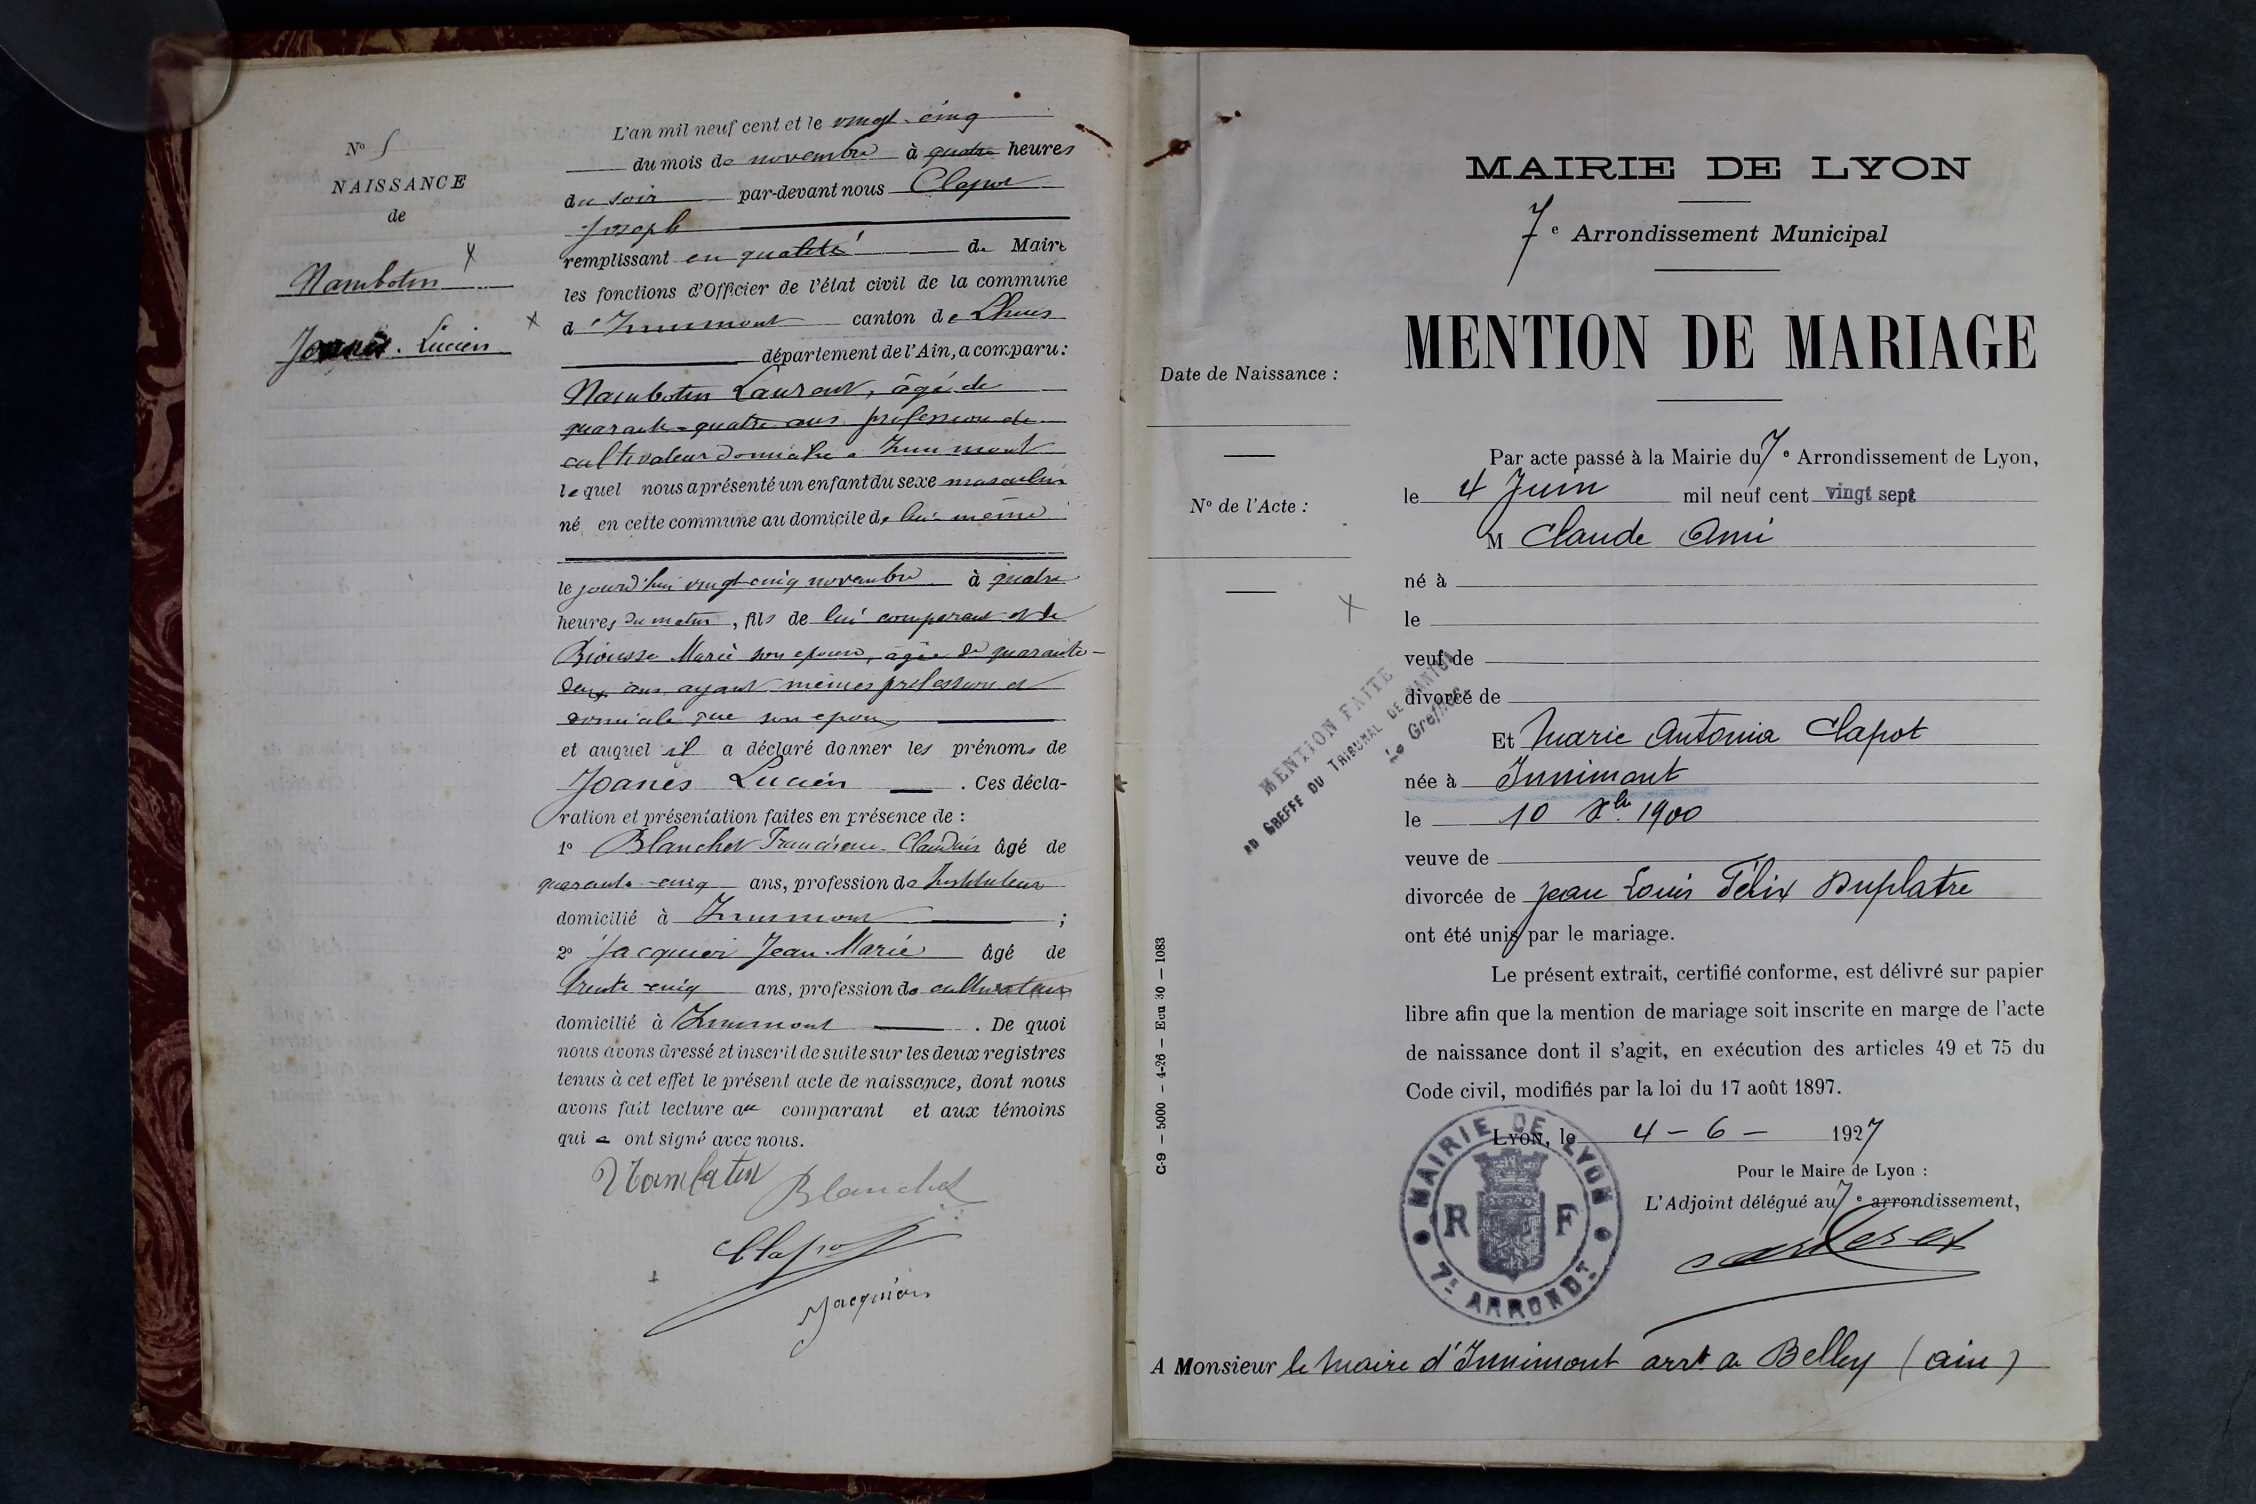 N° 5
NAISSANCE
de
Nambotin
Joanès. Lucien
L'an mil neuf cent et le vingt-cinq
du mois de novembre à quatre heures
du soir par-devant nous Clapot
Joseph
remplissant en qualité de Maire
les fonctions d'Officier de l'état civil de la commune
d'Innimont canton de Lhuis
département de l'Ain, a comparu :
Nambotin Laurent, âgé de
quarante-quatre ans profession de
cultivateur domicilié à Innimont
lequel nous a présenté un enfant du sexe masculin
né en cette commune au domicile de lui-même
le jourd'hui vingt-cinq novembre à quatre
heures du matin, fils de lui comparant et de
Marie son épouse, âgée de quarante-
deux ans, ayant mêmes profession et
domicile que son époux
et auquel il a déclaré donner les prénoms de
Joanès Lucien . Ces décla-
ration et présentation faites en présence de :
1° Blanchet Claudius âgé de
quarante-cinq ans, profession de Instituteur
domicilié à Innimont ;
2° Jacquier Jean-Marie âgé de
trente-cinq ans, profession de cultivateur
domicilié à Innimont . De quoi
nous avons dressé et inscrit de suite sur les deux registres
tenus à cet effet le présent acte de naissance, dont nous
avons fait lecture au comparant et aux témoins
qui ont signé avec nous.
Nambotin
Blanchet
Clapot
Jacquier
Date de Naissance :
N° de l'Acte :
MENTION FAITE
au GREFFE DU TRIBUNAL DE NANTUA
Le Greffier
C-9 — 5000 — 4-26 — Ecu 30 — 1083
MAIRIE DE LYON
7e Arrondissement Municipal
MENTION DE MARIAGE
Par acte passé à la Mairie du 7e Arrondissement de Lyon,
le 4 Juin mil neuf cent vingt sept
M Claude Ami
né à
le
veuf de
divorcé de
Et Marie Antonia Clapot
née à Innimont
le 10 Xbre 1900
veuve de
divorcée de Jean Louis Félix Duplatre
ont été unis par le mariage.
Le présent extrait, certifié conforme, est délivré sur papier
libre afin que la mention de mariage soit inscrite en marge de l'acte
de naissance dont il s'agit, en exécution des articles 49 et 75 du
Code civil, modifiés par la loi du 17 août 1897.
LYON, le 4 - 6 - 1927
Pour le Maire de Lyon :
L'Adjoint délégué au 7e arrondissement,
MAIRIE DE LYON
R F
7E ARRONDT
A Monsieur le Maire d'Innimont arrt de Belley (Ain)